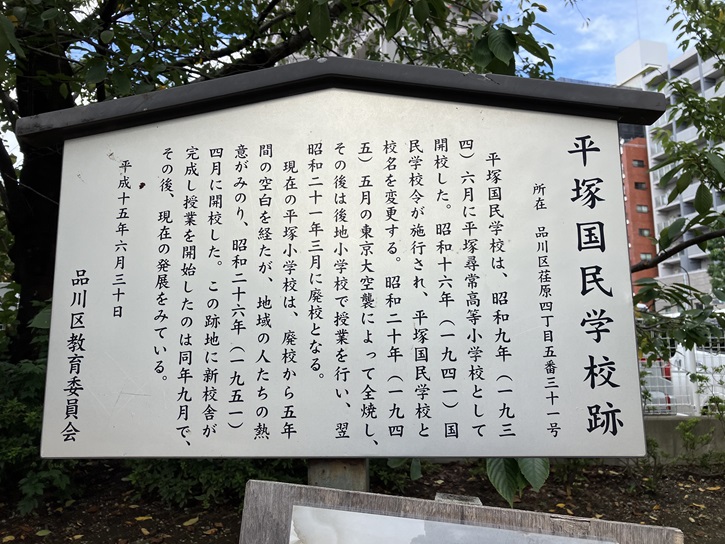 平塚国民学校跡
所在　品川区荏原四丁目五番三十一号
平塚国民学校は、昭和九年（一九三
四）六月に平塚尋常高等小学校として
開校した。昭和十六年（一九四一）国
民学校令が施行され、平塚国民学校と
校名を変更する。昭和二十年（一九四
五）五月の東京大空襲によって全焼し、
その後は後地小学校で授業を行い、翌
昭和二十一年三月に廃校となる。
現在の平塚小学校は、廃校から五年
間の空白を経たが、地域の人たちの熱
意がみのり、昭和二十六年（一九五一）
四月に開校した。この跡地に新校舎が
完成し授業を開始したのは同年九月で、
その後、現在の発展をみている。
平成十五年六月三十日
品川区教育委員会